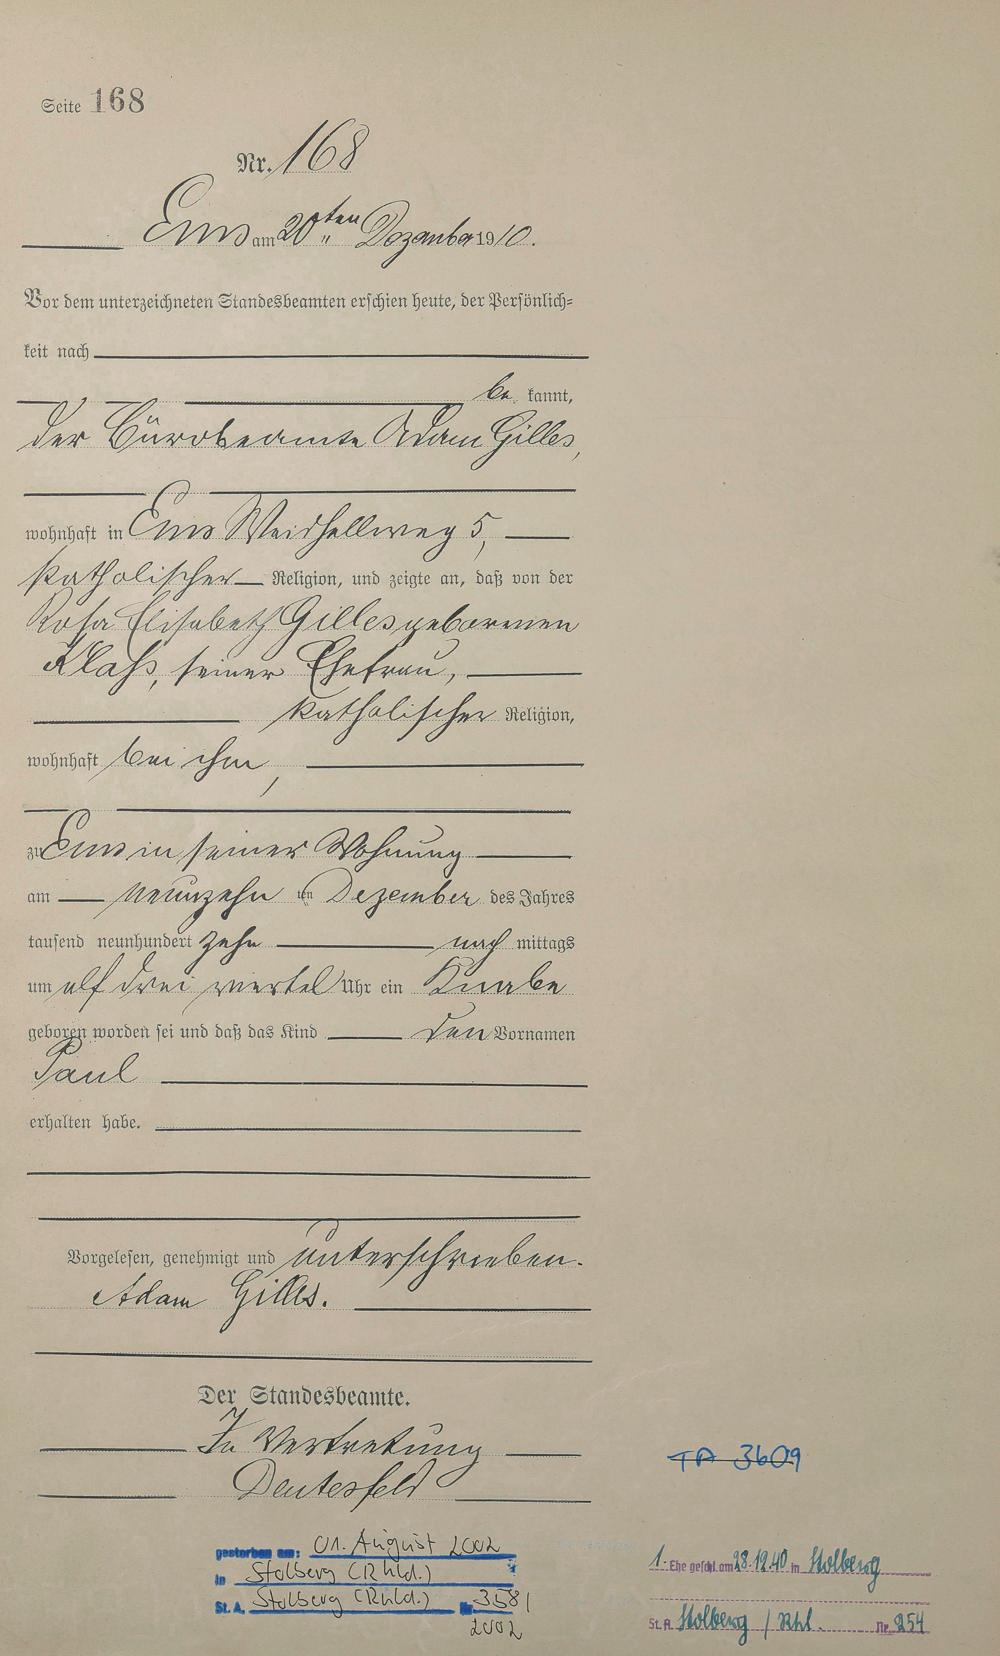 Seite 168
Nr. 168
Ems am 20ten Dezember 1910.
Vor dem unterzeichneten Standesbeamten erschien heute, der Persönlich=
keit nach
be kannt,
der Bürobeamte Adam Gilles,
wohnhaft in Ems 5,
katholischer Religion, und zeigte an, daß von der
Rosa Elisabeth Gilles geborenen
Klaß, seiner Ehefrau,
katholischer Religion,
wohnhaft bei ihm,
zu Ems in seiner Wohnung
am neunzehn ten Dezember des Jahres
tausend neunhundert zehn nach mittags
um elf drei viertel Uhr ein Knabe
geboren worden sei und daß das Kind den Vornamen
Paul
erhalten habe.
Vorgelesen, genehmigt und unterschrieben.
Adam Gilles.
Der Standesbeamte.
In Vertretung
TA 3609
gestorben am: 01. August 2002
in Stolberg (Rhld.)
St. A. Stolberg (Rhld.) Nr. 358/
2002
1. Ehe geschl. am 28.12.40 in Stolberg
St. A. Stolberg / Rhl. Nr. 254